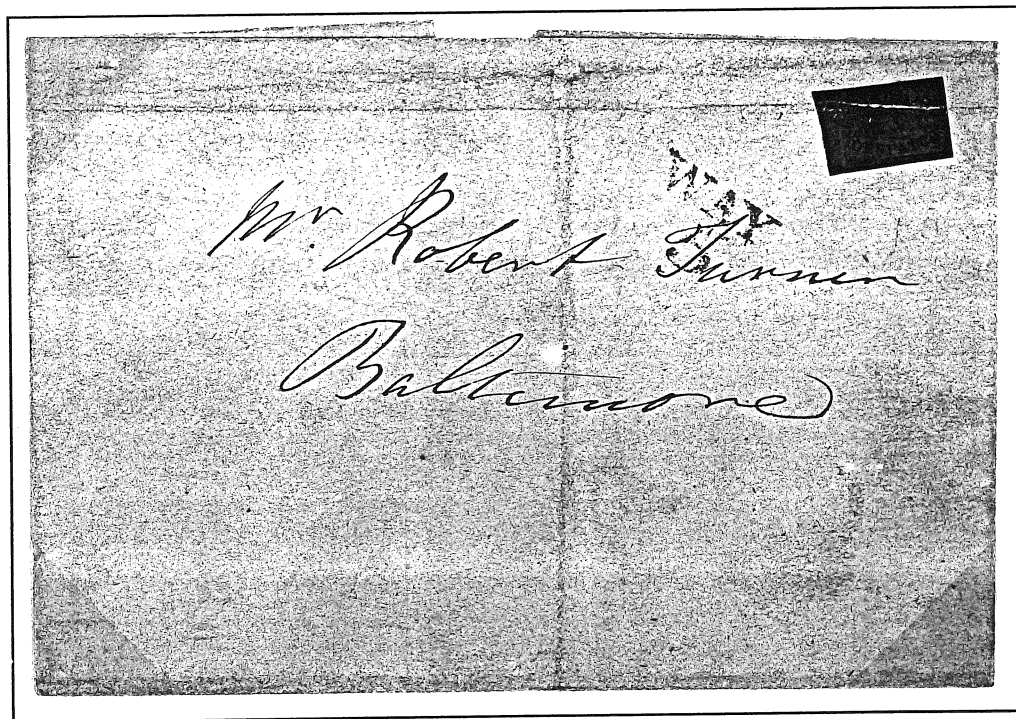 Mr. Robert Turner
Baltimore